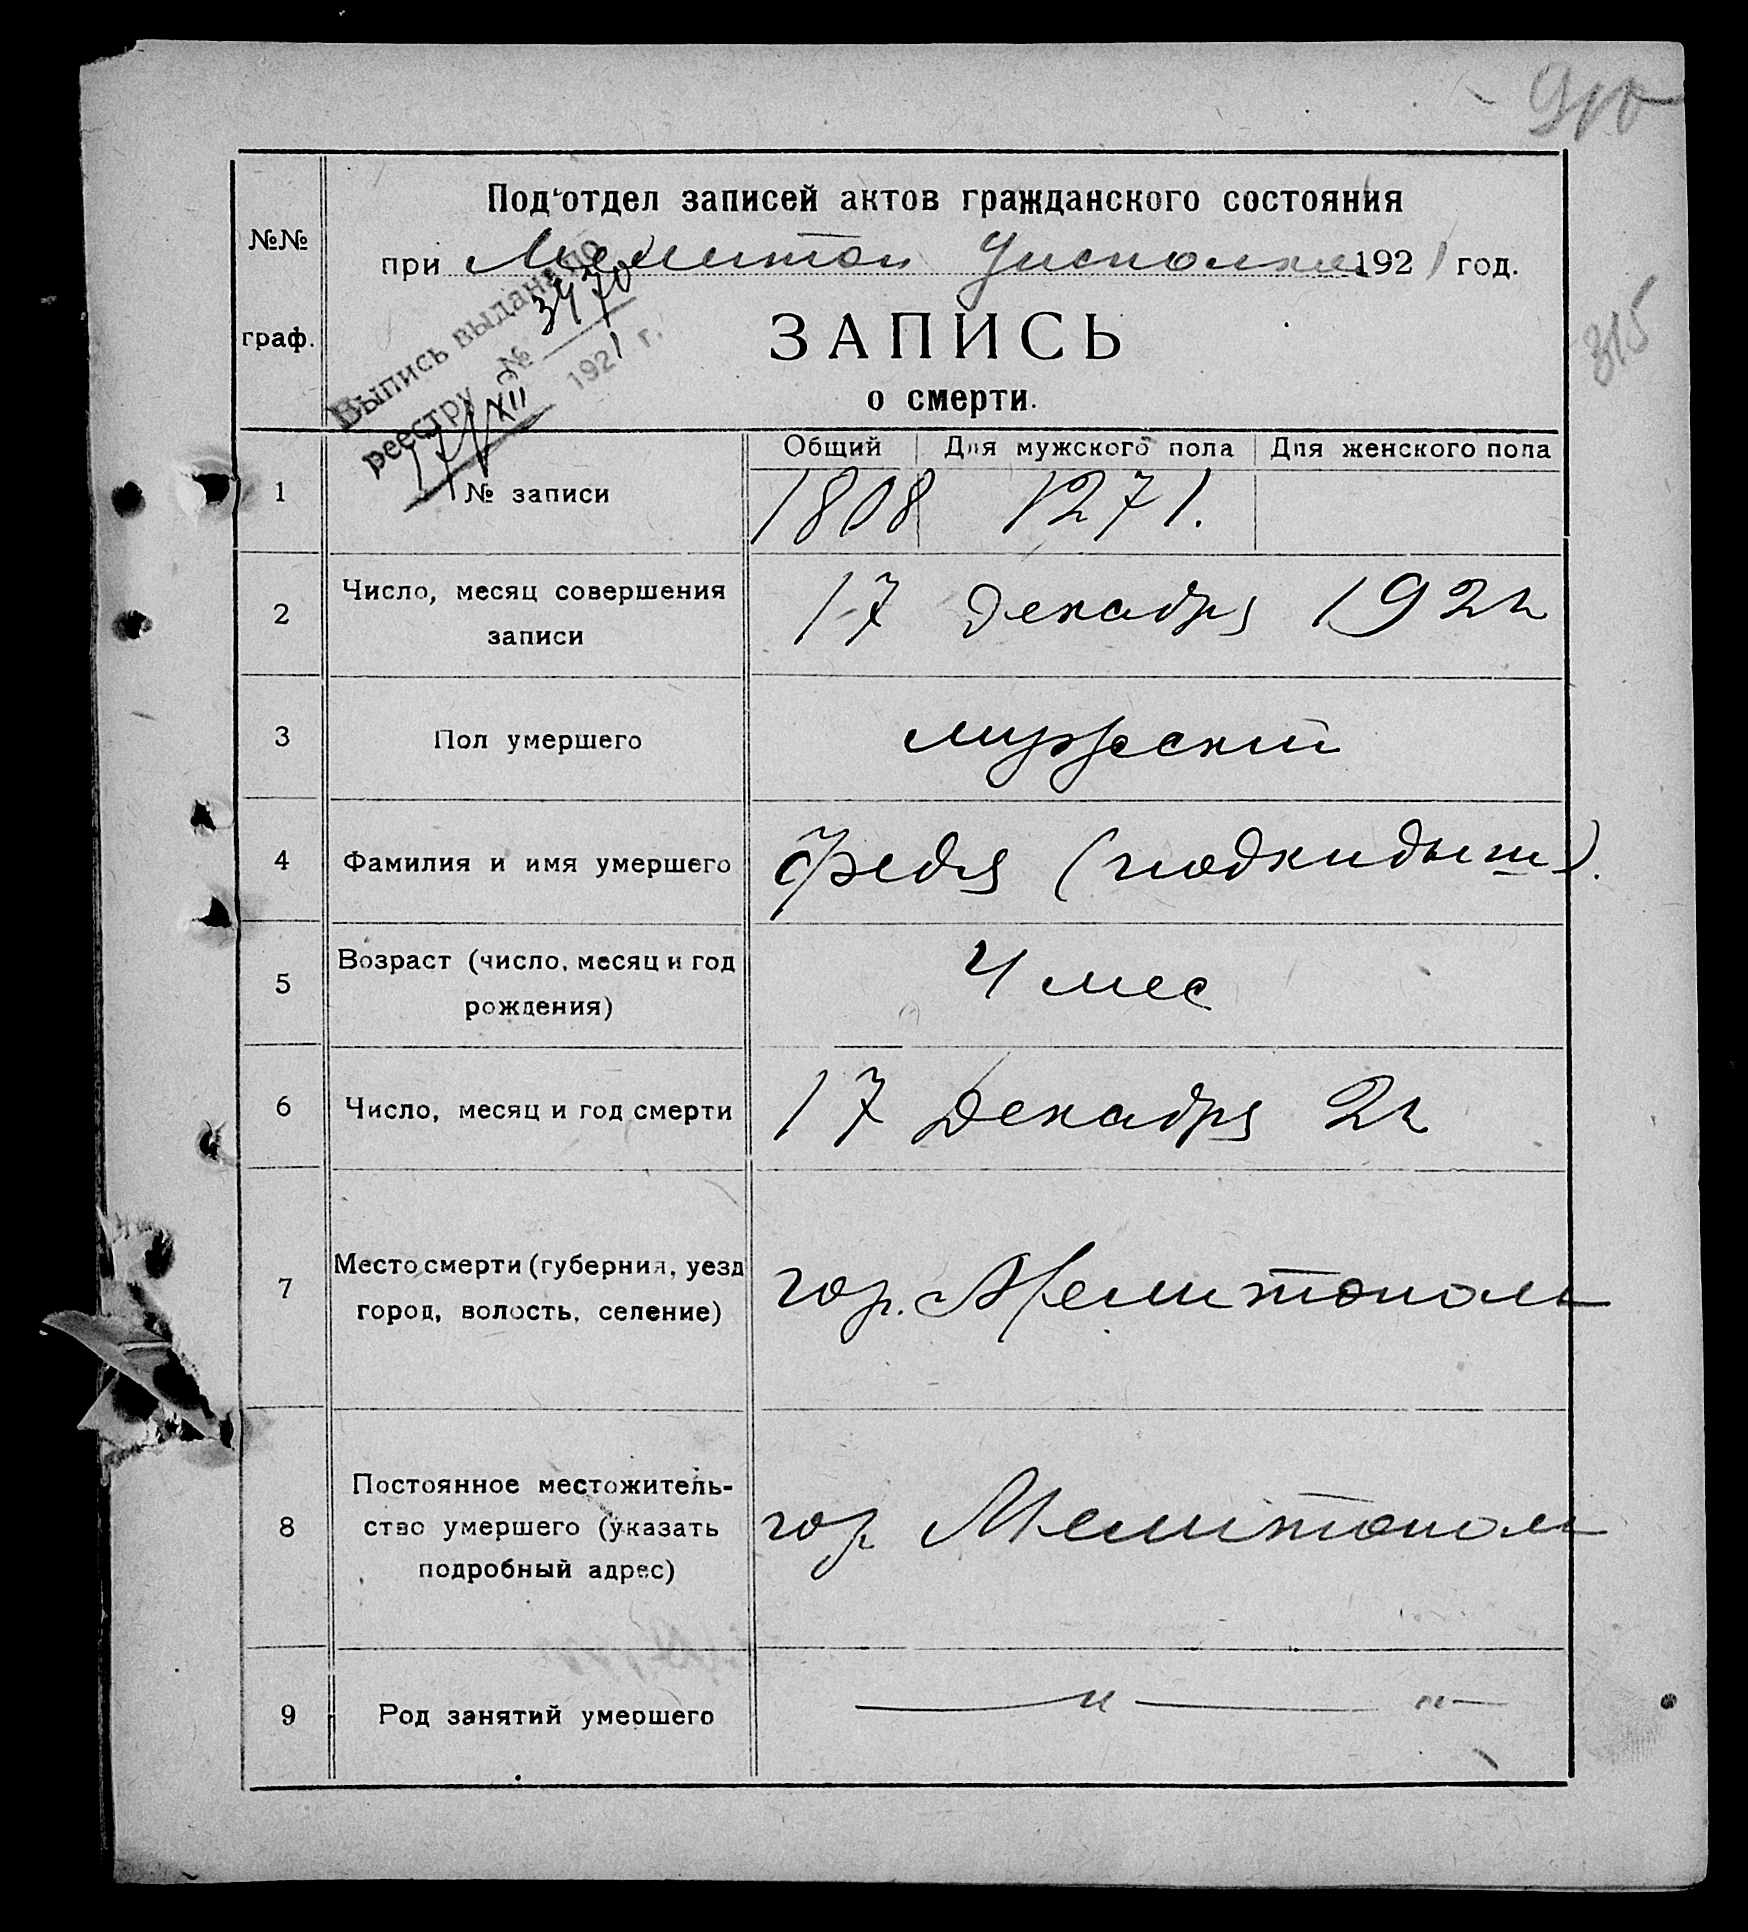 910
Под'отдел записей актов гражданского состояния
№№
при Мелитоп Уисполкоме 1921 год.
315
граф.
Выпись выдана по
реестру № 3470
17/XII 1921 г.
ЗАПИСЬ
о смерти.
Общий Для мужского пола Для женского пола
1 № записи 1808 1271.
2 Число, месяц совершения
записи
17 Декабря 1921
3 Пол умершего мужеский
4 Фамилия и имя умершего Федя (подкидыш).
5 Возраст (число, месяц и год
рождения)
4 мес
6 Число, месяц и год смерти 17 Декабря 21
7 Место смерти (губерния, уезд
город, волость, селение)
гор. Мелитополь
8 Постоянное местожитель-
ство умершего (указать
подробный адрес)
гор Мелитополь
9 Род занятий умершего — „ — „ —